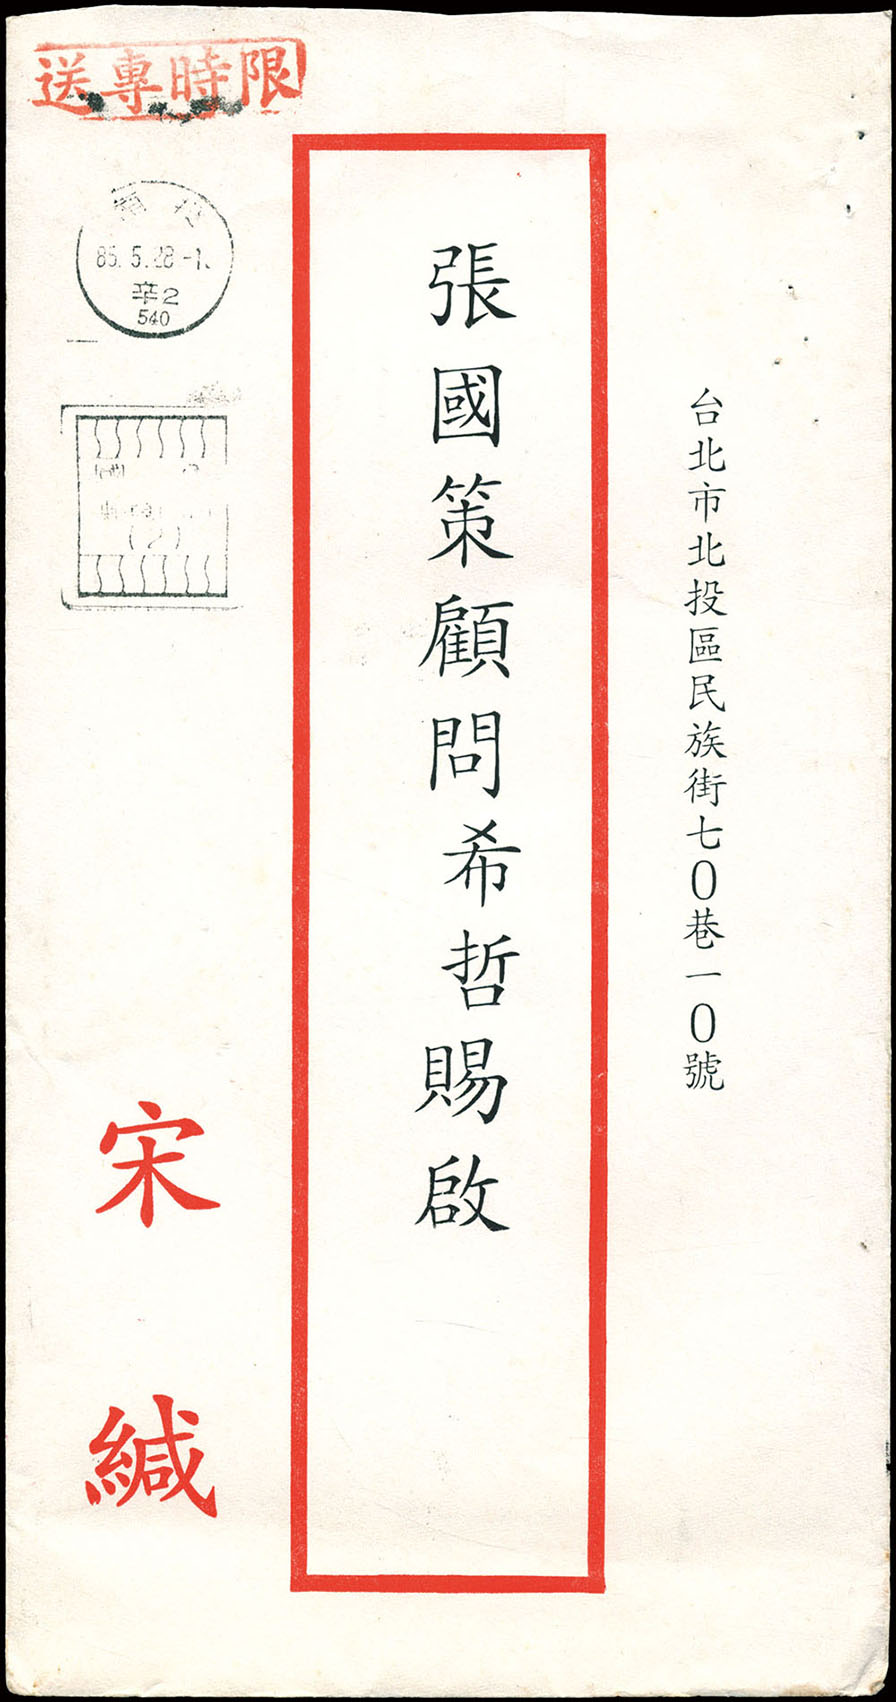 限時專送
台北市北投區民族街七0巷一0號
張國策顧問希哲賜啟
85.5.28-1
辛2
540
(2)
宋緘